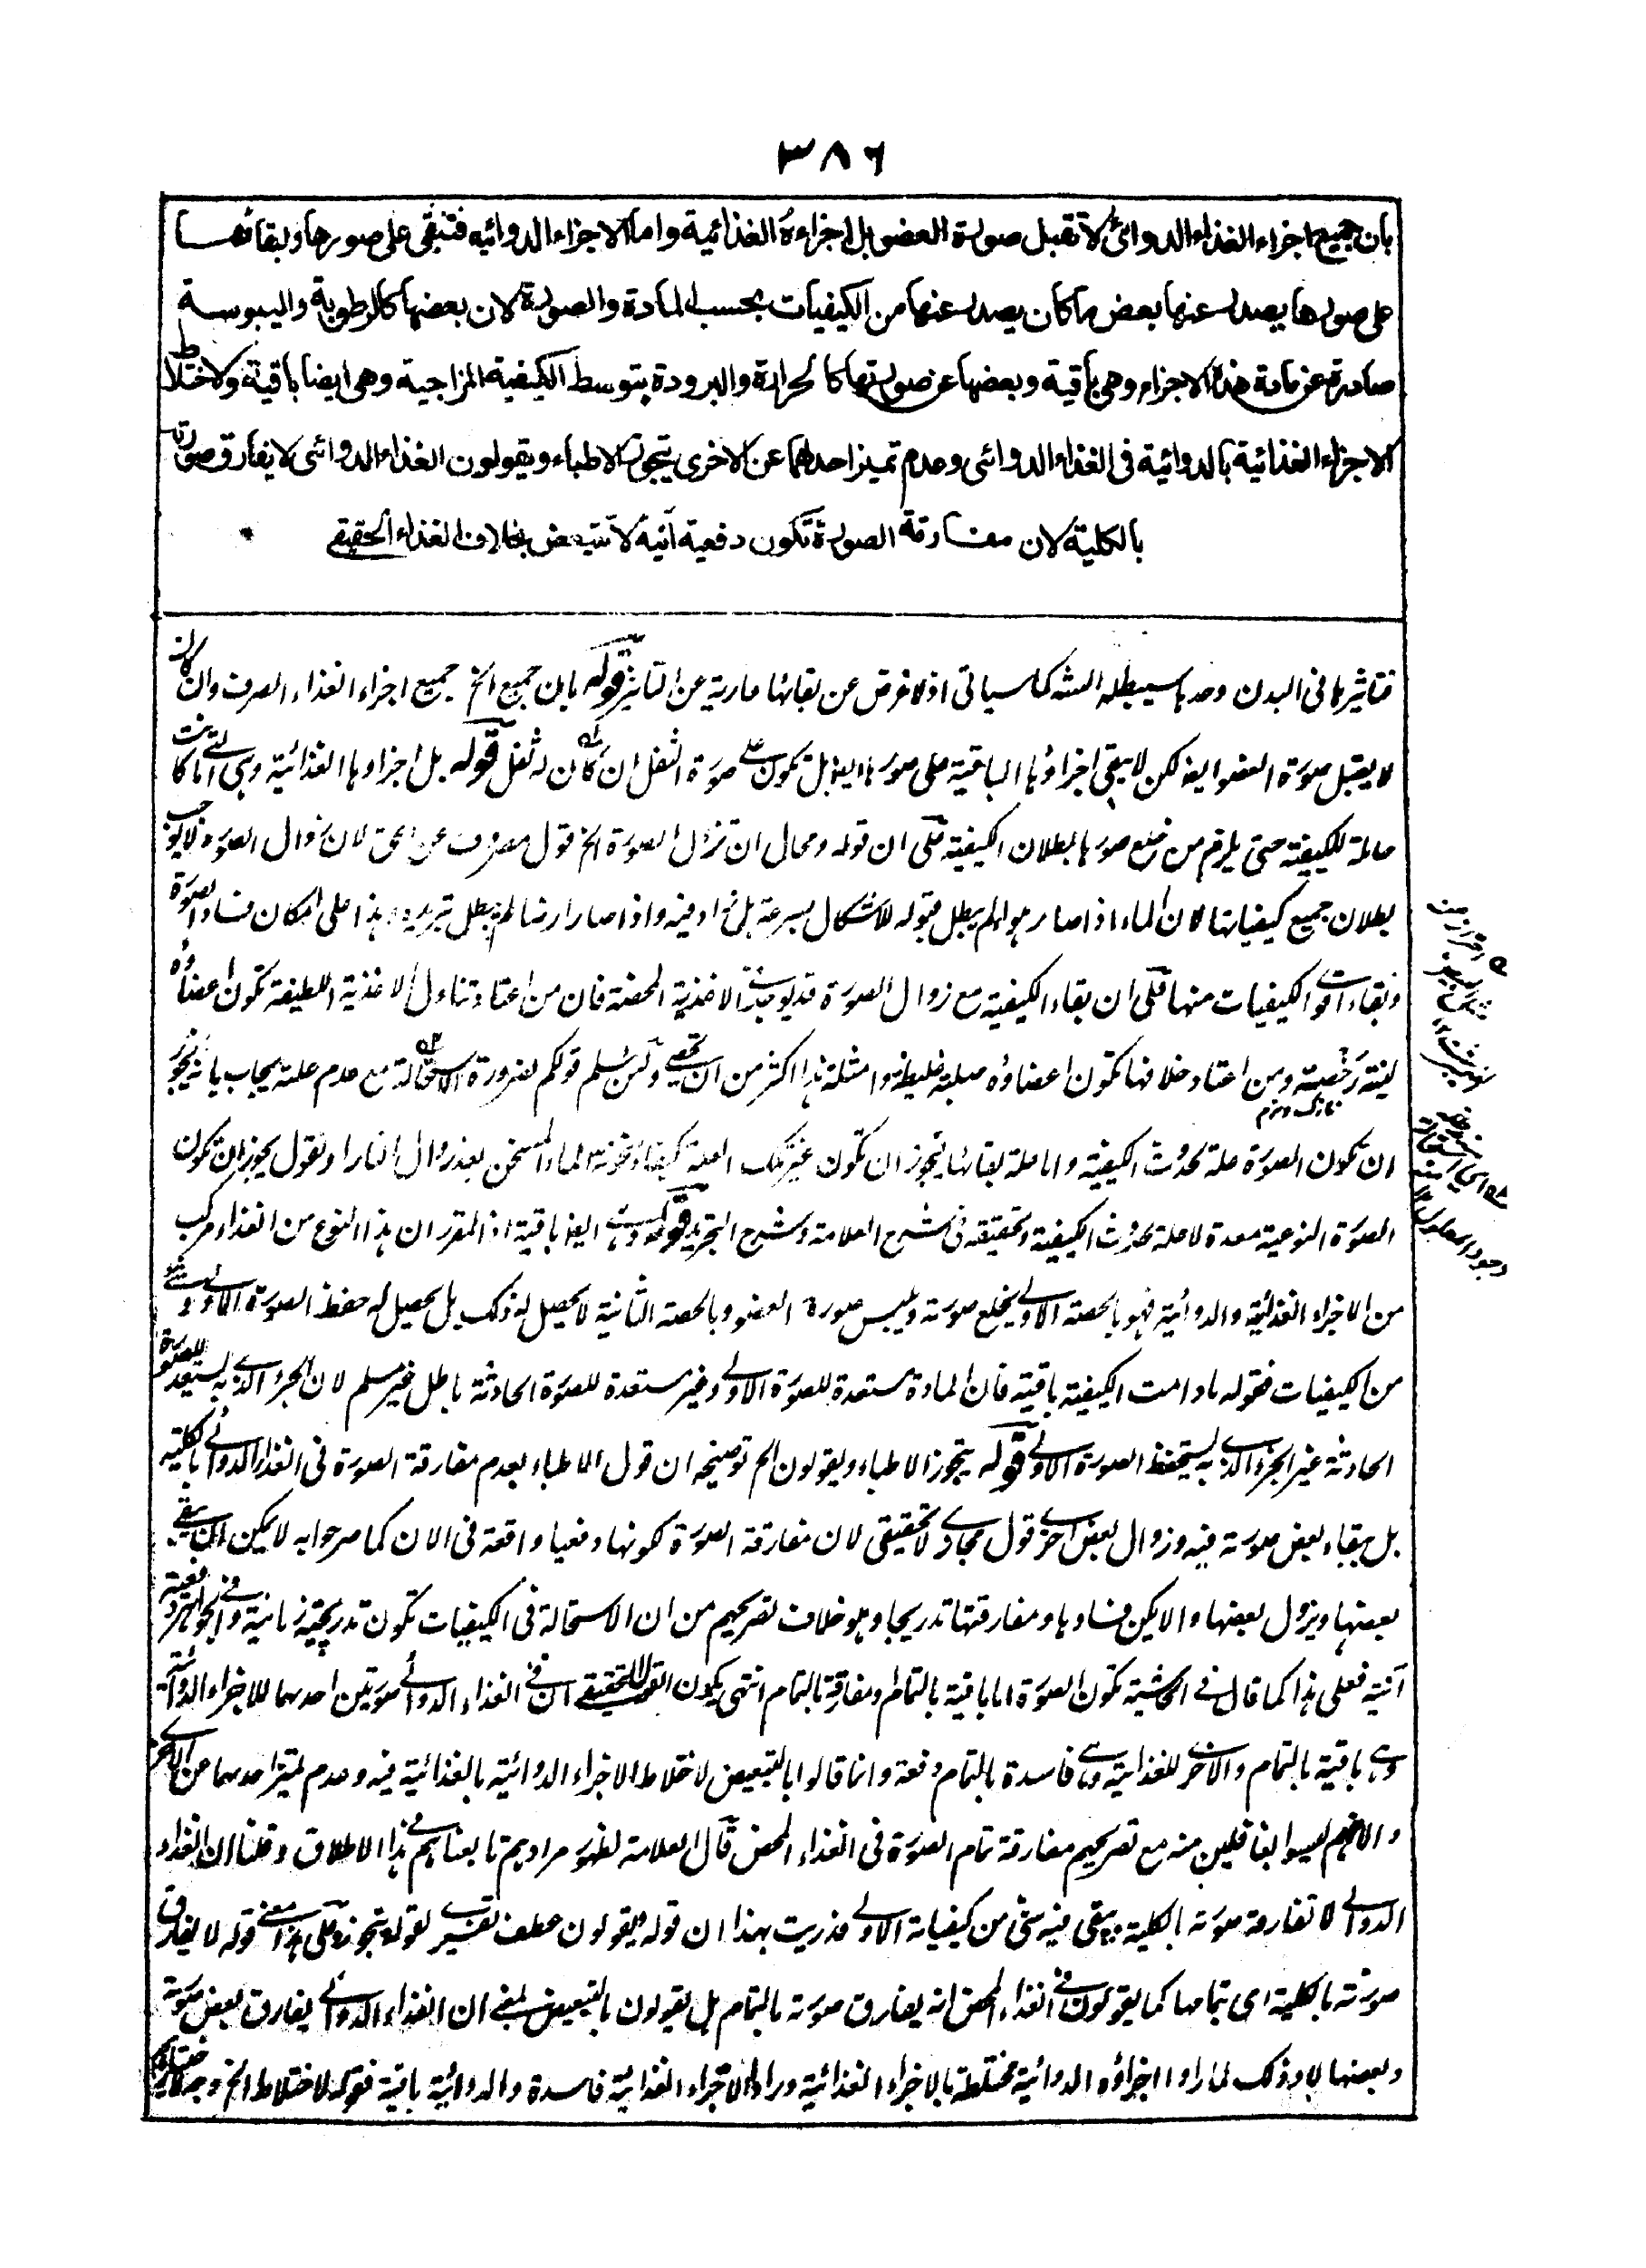 ٣٨٦
بان جميع اجزاء الغذاء الدوائى لا تقبل صورة العضو بل اجزاءه الغذائية واما الاجزاء الدوائيه فتبقى على صورها وببقائها
على صورها يصدر عنها بعض ما كان يصدر عنها من الكيفيات بحسب المادة والصورة لان بعضها كالرطوبة واليبوسة
صادرة عن مادة هذه الاجزاء وهى باقية وبعضها عن صورتها كالحرارة والبرودة بتوسط الكيفية المزاجية وهى ايضا باقية ولاختلاط
الاجزاء الغذائية بالدوائية فى الغذاء الدوائى وعدم تميز احدهما عن الاخرى يتجوز الاطباء ويقولون الغذاء الدوائى لا يفارق صورته
بالكلية لان مفارقة الصورة تكون دفعية آنية لا تتبعض بخلاف الغذاء الحقيقى
فتاثيرها فى البدن وحدها سيبطله الشه كما سياتى اذ لا غرض عن بقائها عارية عن التاثير قوله بان جميع الخ جميع اجزاء الغذاء الصرف وان كان
لا يقبل صورة العضو ايضا لكن لا يبقى اجزاؤها الباقية على صورها ايضا بل تكون على صورة الثفل ان كان له ثفل قوله بل اجزاوها الغذائية وهى التى اما كانت
حاملة للكيفية حتى يلزم من خلع صورها بطلان الكيفية على ان قوله ومحال ان تزول الصورة الخ قول مصروف عن الحق لان زوال الصورة لا يوجب
بطلان جميع كيفياتها لان الماء اذا صار هواء لم يبطل قبوله للاشكال بسرعة بل زاد فيه واذا صار ارضا لم يبطل تبريده وهذا على امكان فساد الصورة
وبقاء الكيفيات منها على ان بقاء الكيفية مع زوال الصورة قد يوجد فى الاغذية المحضة فان من اعتاد تناول الاغذية اللطيفة تكون اعضاؤه
لينة رخصة ومن اعتاد خلافها تكون اعضاؤه صلبة غليظة وامثلة هذا اكثر من ان تحصى ولئن سلم قولكم بضرورة الاستحالة مع عدم علته يجاب بانه يجوز
نازك ونرم
ان تكون الصورة علة لحدوث الكيفية واما علة بقائها فيجوز ان تكون غير تلك العلة كبقاء سخونة الماء المسخن بعد زوال النار او نقول يجوز ان تكون
الصورة النوعية معدة لا علة لحدوث الكيفية وتحقيقه فى شرح العلامة وشرح التجريد قوله وهى ايضا باقية اذ المقرر ان هذا النوع من الغذاء مركب
من الاجزاء الغذائية والدوائية فهو بالحصة الاولى يخلع صورته ويلبس صورة العضو وبالحصة الثانية لا يحصل له ذلك بل يحصل له حفظ الصورة الاولى وشىء
من الكيفيات فقوله ما دامت الكيفية باقية فان المادة مستعدة للصورة الاولى وغير مستعدة للصورة الحادثة باطل غير مسلم لان الجزء الذى به يستعد للصورة
الحادثة غير الجزء الذى به يستحفظ الصورة الاولى قوله يتجوز الاطباء ويقولون الخ توضيحه ان قول الاطباء بعدم مفارقة الصورة فى الغذاء الدوائى بالكلية
بل ببقاء بعض صورته فيه وزوال بعض آخر قول مجازى لا تحقيقى لان مفارقة الصورة لكونها دفعيا واقعة فى الان كما صرحوا به لا يمكن ان يبقى
بعضها ويزول بعضها والا يمكن فسادها ومفارقتها تدريجا وهو خلاف تصريحهم من ان الاستحالة فى الكيفيات تكون تدريجية زمانية وفى الجواهر دفعية
آنية فعلى هذا كما قال فى الحاشية تكون الصورة اما باقية بالتمام او مفارقة بالتمام انتهى يكون القول التحقيقى ان فى الغذاء الدوائى صورتين احدهما للاجزاء الدوائية
وهى باقية بالتمام والاخرى للغذائية وهى فاسدة بالتمام دفعة وانما قالوا بالتبعيض لاختلاط الاجزاء الدوائية بالغذائية فيه وعدم تميز احدهما عن الاخرى
والا فهم ليسوا بغافلين منه مع تصريحهم مفارقة تمام الصورة فى الغذاء المحض قال العلامة لظهور مرادهم تابعناهم فى هذا الاطلاق وقلنا ان الغذاء
الدوائى لا تفارقه صورته بالكلية ويبقى فيه شئ من كيفياته الاولى فدريت بهذا ان قوله ويقولون عطف تفسير لقوله يتجوز وعلى هذا معنى قوله لا يفارق
صورته بالكلية اى بتمامها كما يقولون فى الغذاء المحض انه يفارق صورته بالتمام بل يقولون بالتبعيض بمعنى ان الغذاء الدوائى يفارق بعض صورته
وبعضها لا وذلك لما راوا اجزاؤه الدوائية مختلطة بالاجزاء الغذائية وراوا الاجزاء الغذائية فاسدة والدوائية باقية فقوله لاختلاط الخ